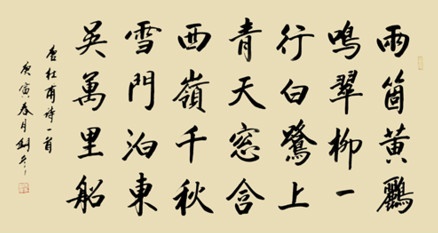 兩箇黃鸝
鳴翠柳一
行白鷺上
青天窓含
西嶺千秋
雪門泊東
吳萬里船
杜甫詩一首
庚寅春月